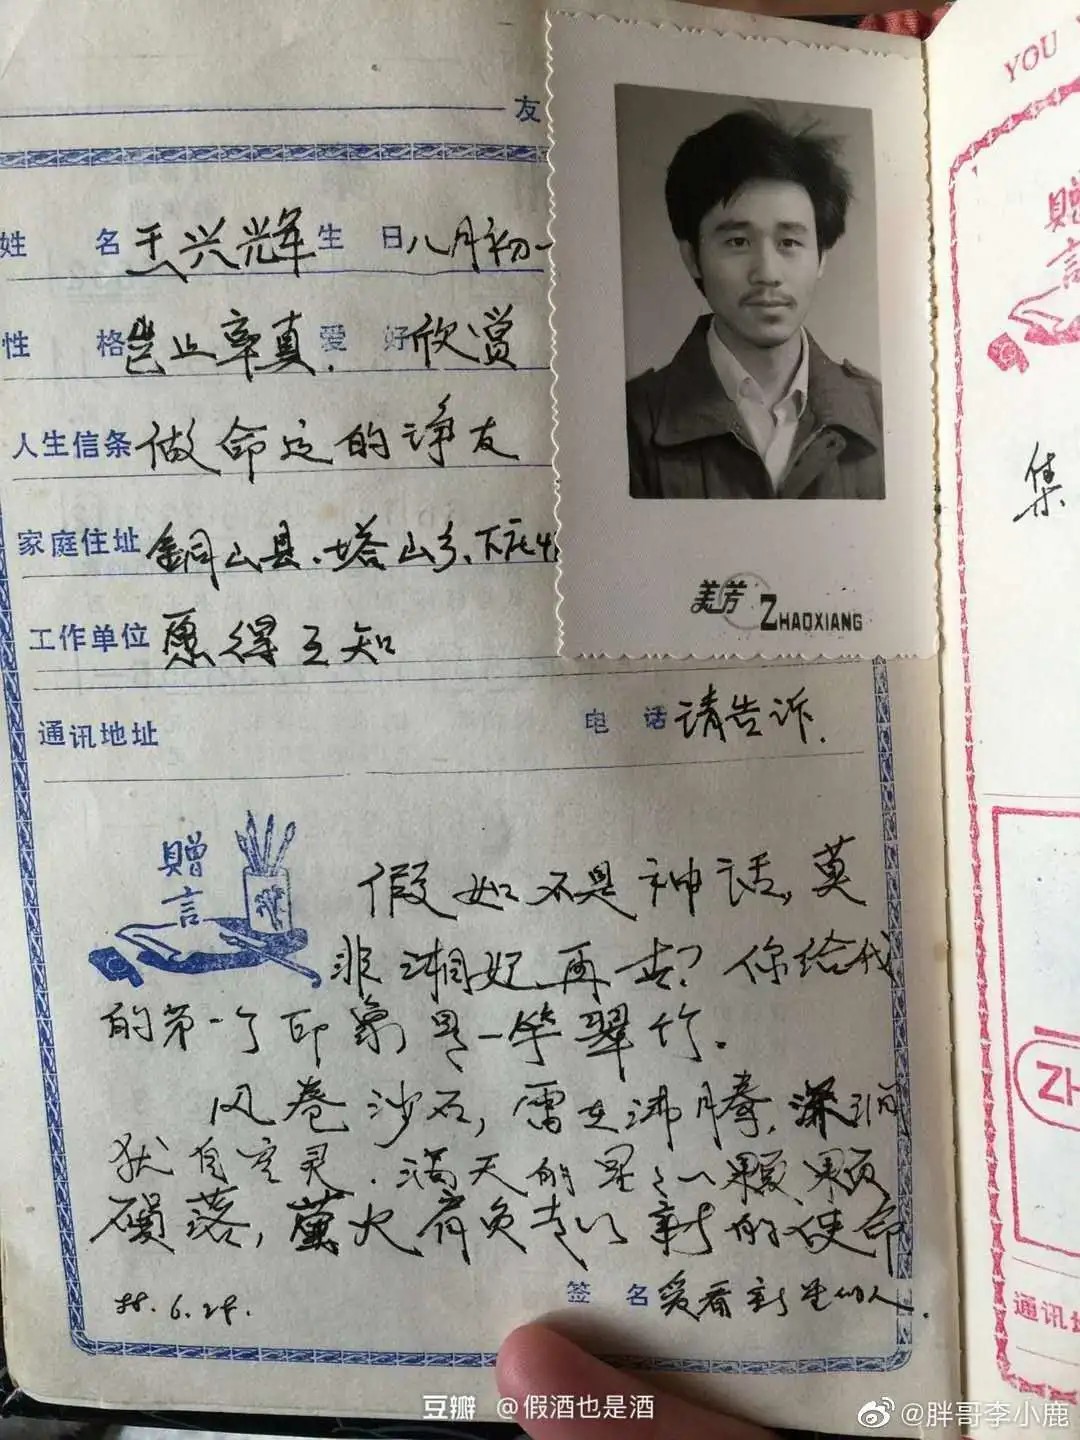 友
姓 名 王兴辉 生 日 八月初一
性 格 岂止率真. 爱 好 欣赏
人生信条 做命运的诤友
家庭住址 銅山县、塔山乡、下庄
工作单位 愿得互知
通讯地址 电 话 请告诉.
美芳 ZHAOXIANG
赠言
假如不是神话,莫
非湘妃再世?你给我
的第一个印象是一竿翠竹。
风卷沙石,雷在沸腾,深涧
犹自空灵.满天的星星一颗颗
殒落,萤火肩负着新的使命
88.6.24.
签 名 爱看新生的人.
YOU
赠言
集
ZH
通讯地
豆瓣 @假酒也是酒
@胖哥李小鹿